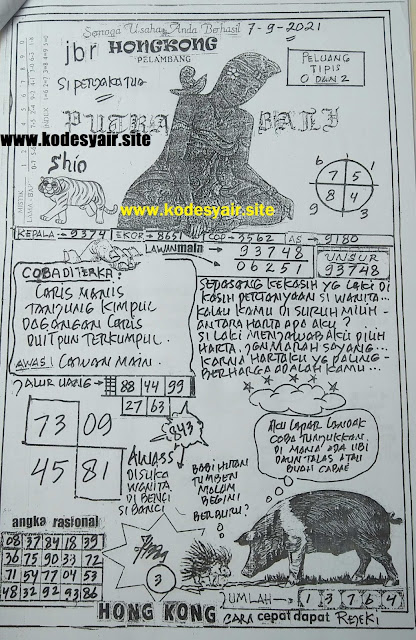 Semoga Usaha Anda Berhasil
7-9-2021
jbr HONGKONG
PELAMBANG
SI PENGAKATUA
PELUANG
TIPIS
0 DAN 2
PUTRA BALI
www.kodesyair.site
Shio
www.kodesyair.site
6 1
7 5
8 4
9 3
KEPALA = 9374 EKOR = 8651 COP = 3562 AS = 9180
LAWAN main
93748
06251
UNSUR
93748
COBA DITERKA:
CARIS MANIS
TANJUNG KIMPUL
DAGANGAN CARIS
DUITPUN TERKUMPUL.
AWAS! CAWAN MAIN.
SEPASANG KEKASIH YG LAKI DI
KASIH PERTANYAAN SI WANITA...
KALAU KAMU DI SURUH MILIH
ANTARA HARTA APA AKU?
SI LAKI MENJAWAB AKU PILIH
HARTA, JGN MARAH SAYANG...
KARNA HARTAKU YG PALING
BERHARGA ADALAH KAMU...
JALUR UANG =
88 44 99
27 63
73 09
843
45 81
AWASS
DISUKA
WANITA
DI BENCI
SI BANCI
BABI HUTAN
TUMBEN
MALUM
BEGINI
BERBURU?
AKU LAPAR LANDAK
COBA TUNJUKKAN
DI MANA ADA UBI
DAUN TALAS ATAU
BUAH CABAE
angka rasional
08 37 84 18 39
36 75 90 33 72
71 54 77 04 53
48 32 92 93 86
3
JUMLAH - 1 3 7 6 4
HONG KONG CARA cepat dapat REJEKI